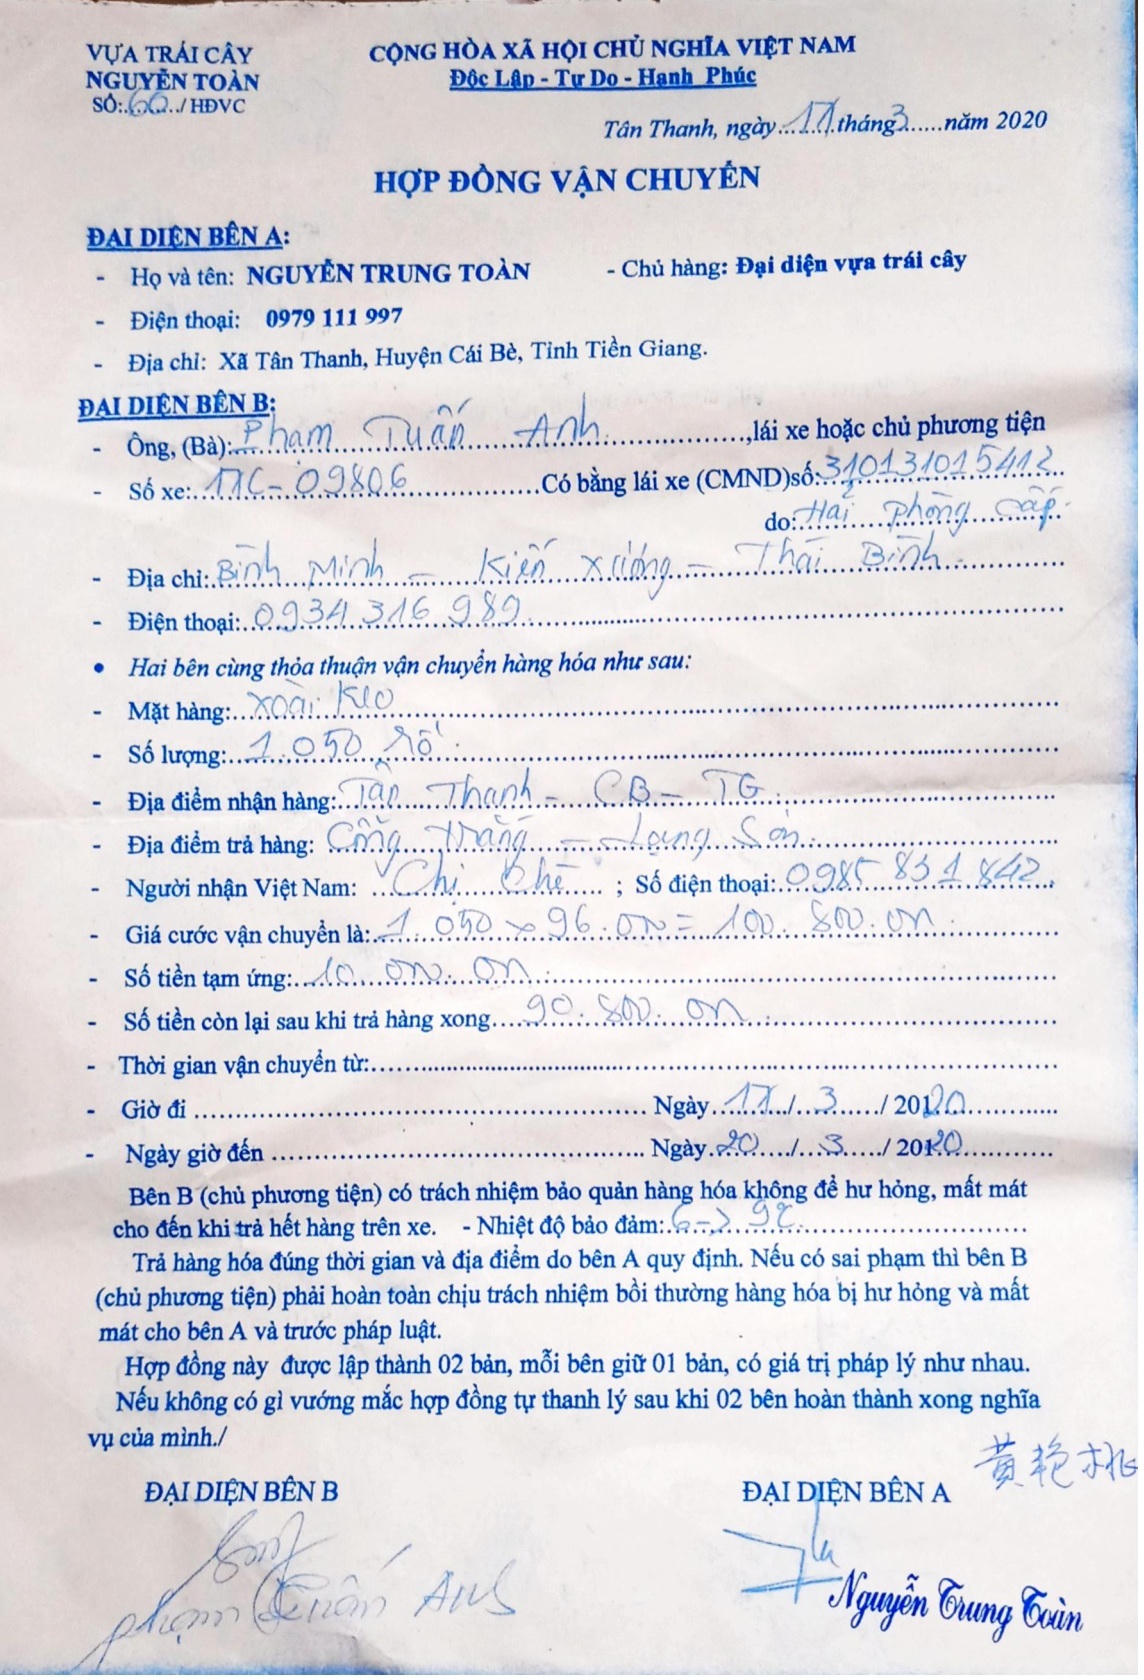 VỰA TRÁI CÂY
NGUYỄN TOÀN
SỐ:..60../HĐVC
CỘNG HÒA XÃ HỘI CHỦ NGHĨA VIỆT NAM
Độc Lập - Tự Do - Hạnh Phúc
Tân Thanh, ngày 17 tháng 3 năm 2020
HỢP ĐỒNG VẬN CHUYỂN
ĐẠI DIỆN BÊN A:
- Họ và tên: NGUYỄN TRUNG TOÀN - Chủ hàng: Đại diện vựa trái cây
- Điện thoại: 0979 111 997
- Địa chỉ: Xã Tân Thanh, Huyện Cái Bè, Tỉnh Tiền Giang.
ĐẠI DIỆN BÊN B:
- Ông, (Bà): Phạm Tuấn Anh, lái xe hoặc chủ phương tiện
- Số xe: 17C-09806 Có bằng lái xe (CMND)số: 310131015412
do: Hải phòng cấp
- Địa chỉ: Bình Minh - Kiến Xương - Thái Bình
- Điện thoại: 0934.316.989
• Hai bên cùng thỏa thuận vận chuyển hàng hóa như sau:
- Mặt hàng: xoài keo
- Số lượng: 1.050 rổ
- Địa điểm nhận hàng: Tân Thanh - CB - TG
- Địa điểm trả hàng: Cổng trắng - Lạng Sơn
- Người nhận Việt Nam: Chị ; Số điện thoại: 0985 831 842
- Giá cước vận chuyển là: 1.050 x 96.000 = 100.800.000
- Số tiền tạm ứng: 10.000.000
- Số tiền còn lại sau khi trả hàng xong 90.800.000
- Thời gian vận chuyển từ:
- Giờ đi Ngày 17/3/2020
- Ngày giờ đến Ngày 20/3/2020
Bên B (chủ phương tiện) có trách nhiệm bảo quản hàng hóa không để hư hỏng, mất mát
cho đến khi trả hết hàng trên xe. - Nhiệt độ bảo đảm:
Trả hàng hóa đúng thời gian và địa điểm do bên A quy định. Nếu có sai phạm thì bên B
(chủ phương tiện) phải hoàn toàn chịu trách nhiệm bồi thường hàng hóa bị hư hỏng và mất
mát cho bên A và trước pháp luật.
Hợp đồng này được lập thành 02 bản, mỗi bên giữ 01 bản, có giá trị pháp lý như nhau.
Nếu không có gì vướng mắc hợp đồng tự thanh lý sau khi 02 bên hoàn thành xong nghĩa
vụ của mình./
黄艳桃
ĐẠI DIỆN BÊN B ĐẠI DIỆN BÊN A
phạm Tuấn Anh
Nguyễn Trung Toàn